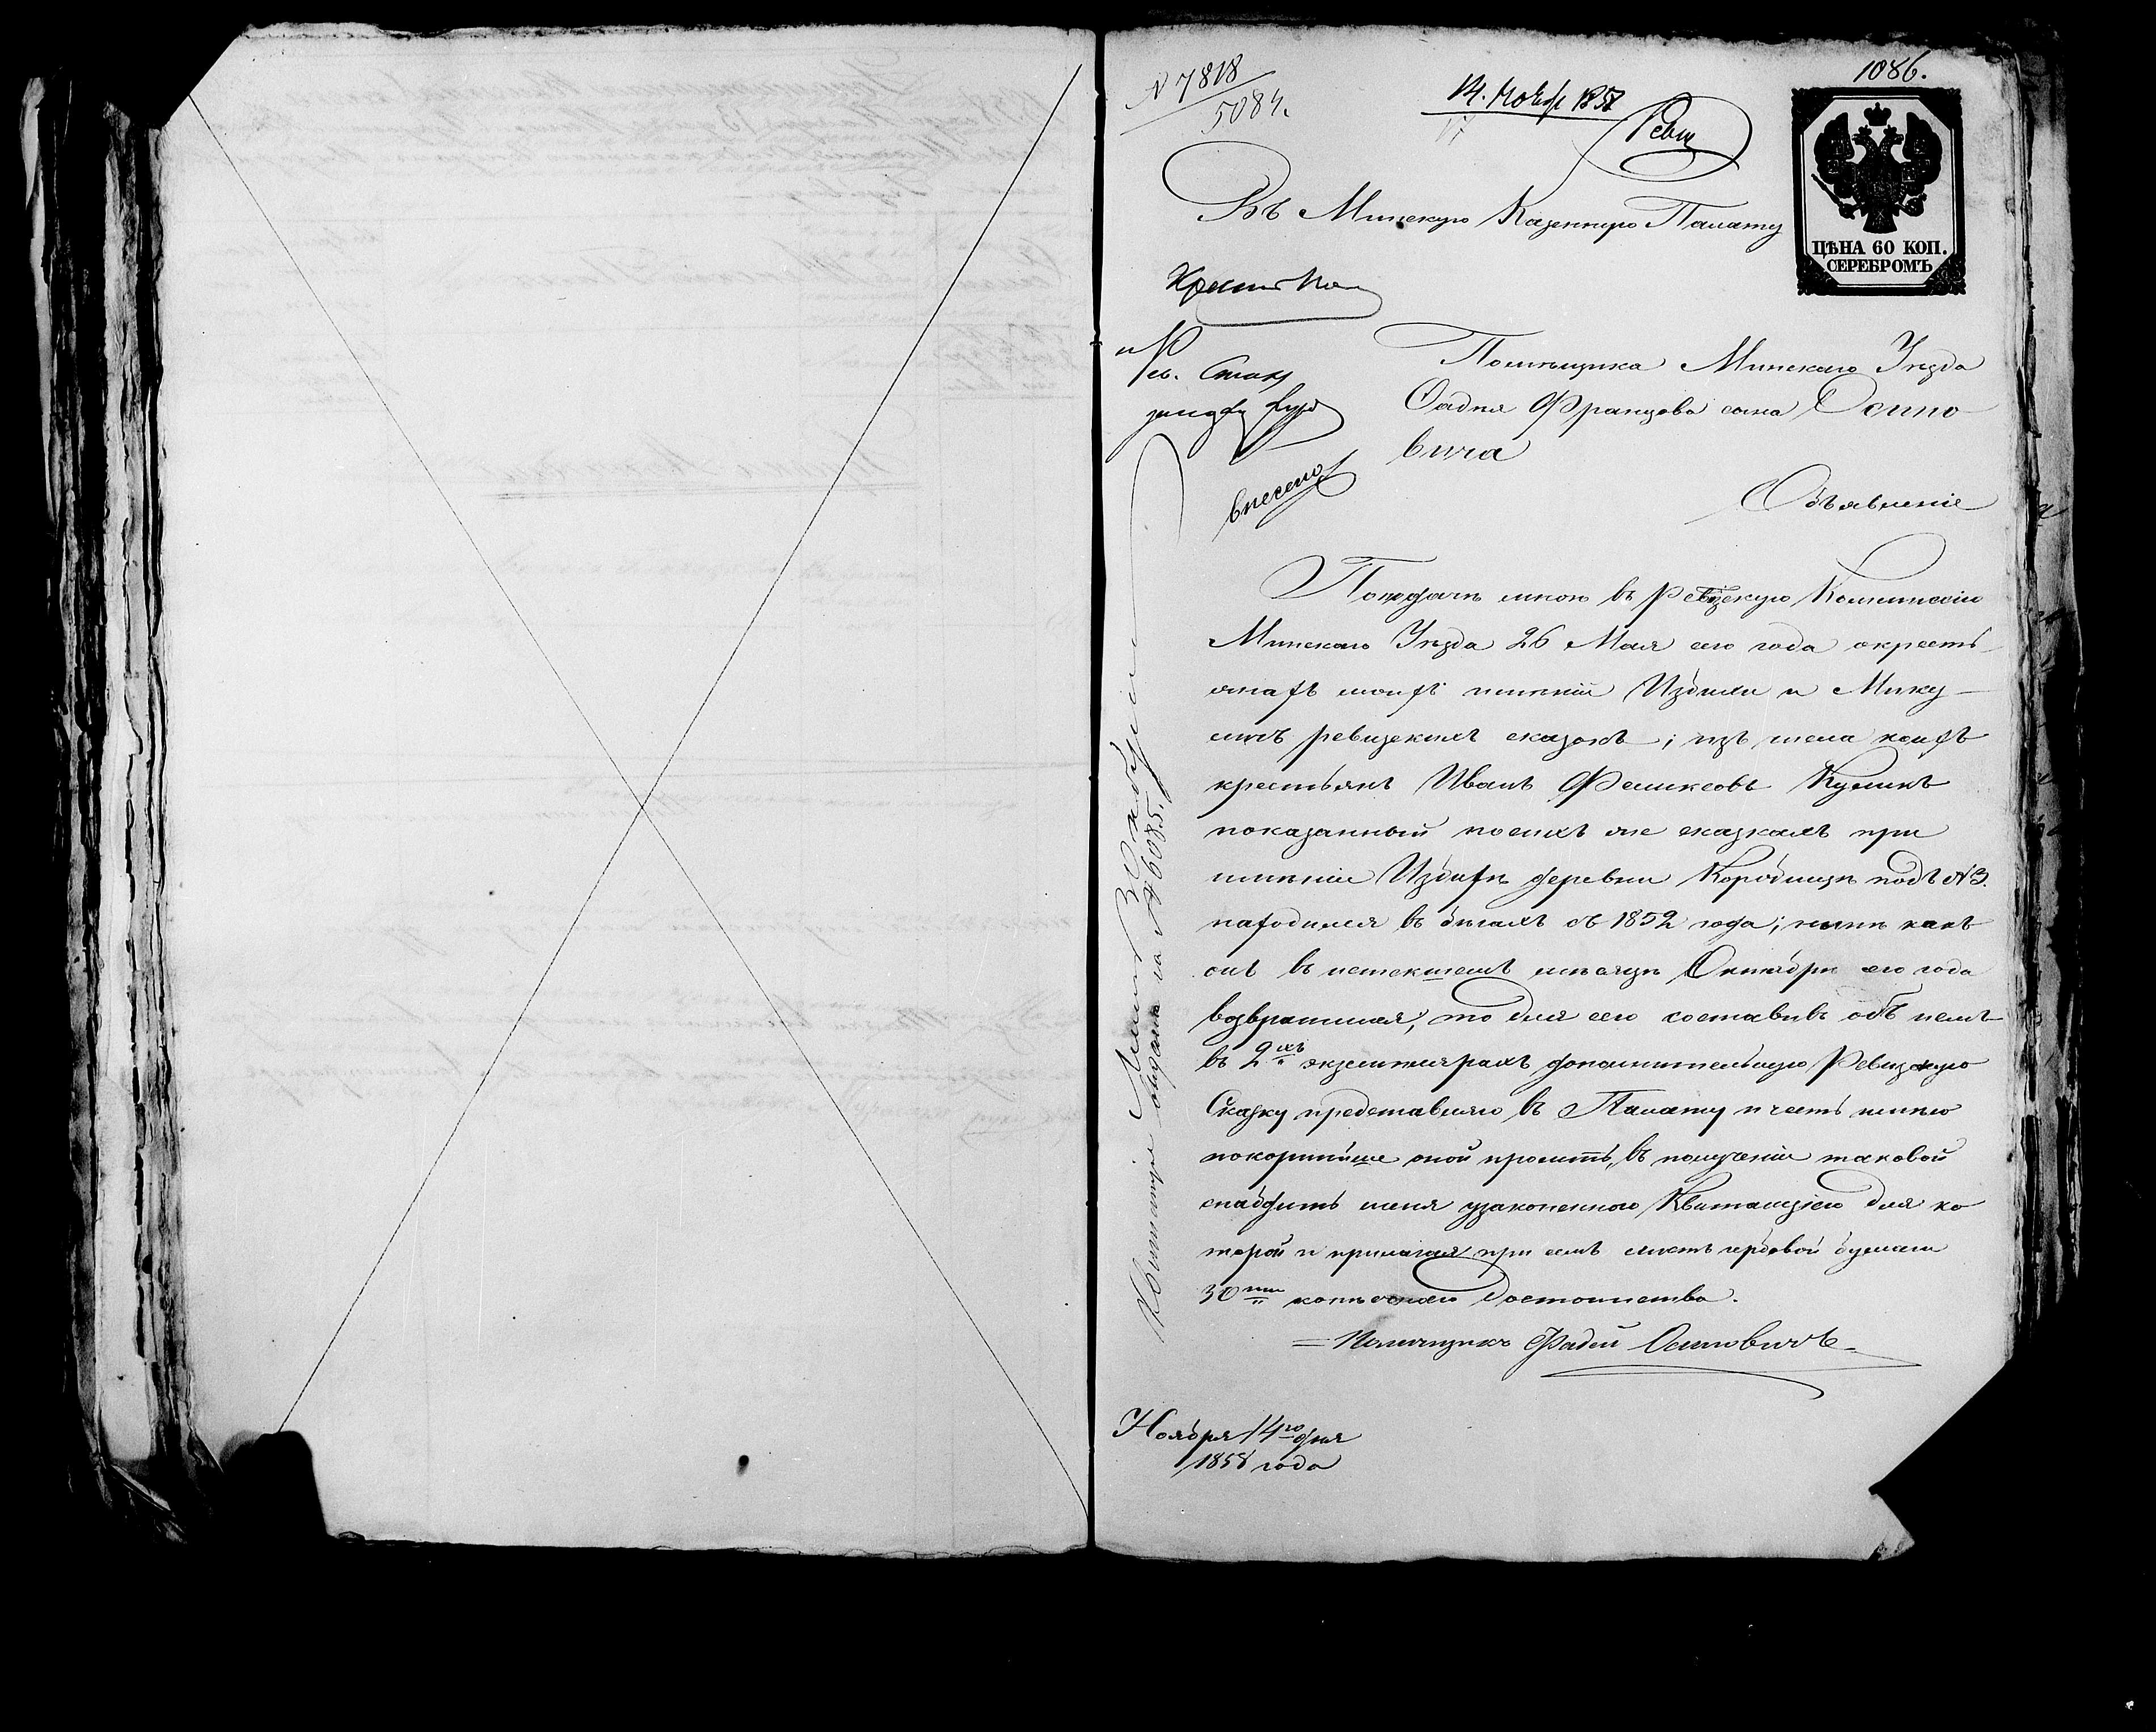 1086.
N 7818
5084.
14. Ноябр 1858
Реви
ЦѢНА 60 КОП.
СЕРЕБРОМЪ
Въ Минскую Казенную Палату
Помѣщика Минскаго Уѣзда
Фадея Францова сына Осипо
вича
внесено
Объявленіе
По подачѣ мною въ Ревизскую Коммиссію
Минскаго Уѣзда 26 Мая сего года о крестъ-
янахъ моихъ имѣній Избихи и Мику-
личъ ревизскихъ сказокъ; изъ числа коихъ
крестьянъ Иванъ Феликсовъ Куликъ
показанный по симъ же сказкамъ при
имѣніи Избихѣ деревни Королищѣ подъ N 3.
находился въ бѣгахъ съ 1852 года; нынѣ какъ
онъ въ истекшемъ мѣсяцѣ Октябрѣ сего года
возвратился, то для сего составивъ объ немъ
въ 2хъ экземплярахъ дополнительную Ревизскую
Сказку представляю въ Палату и честь имѣю
покорнѣйше оной просить, въ полученіи таковой
снабдить меня узаконенною Квитанціею для ко
торой и прилагая при семъ листъ гербовой бумаги
30ти копѣечнаго достоинства.
Помѣщикъ Фадей Осиповичъ
Ноября 14го дня
1858 года
Квитанція
выдана за N 6085.